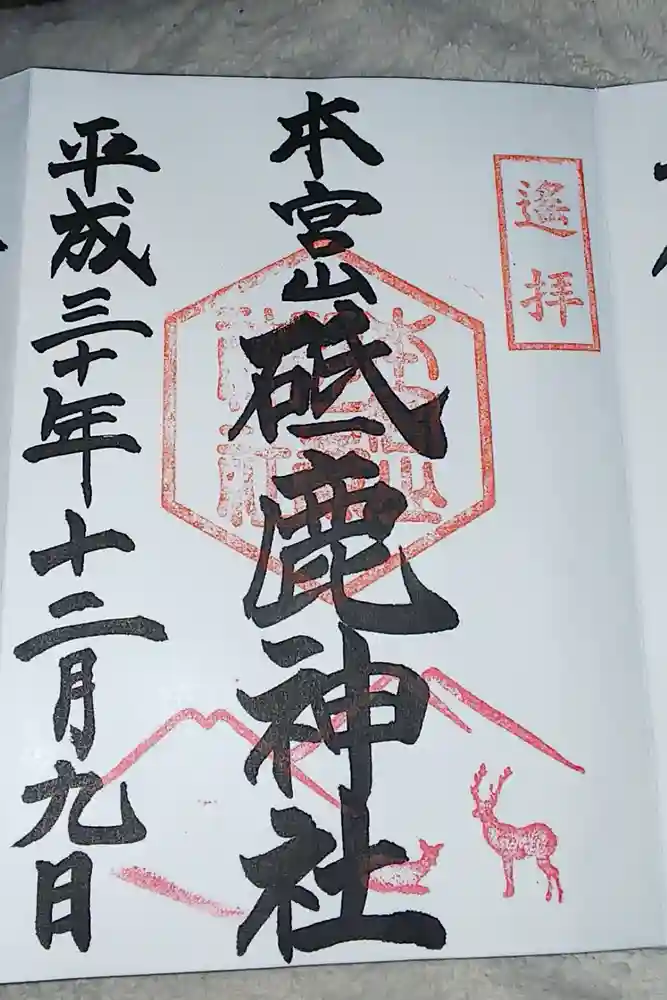 遙拝
本宮山砥鹿神社
平成三十年十二月九日